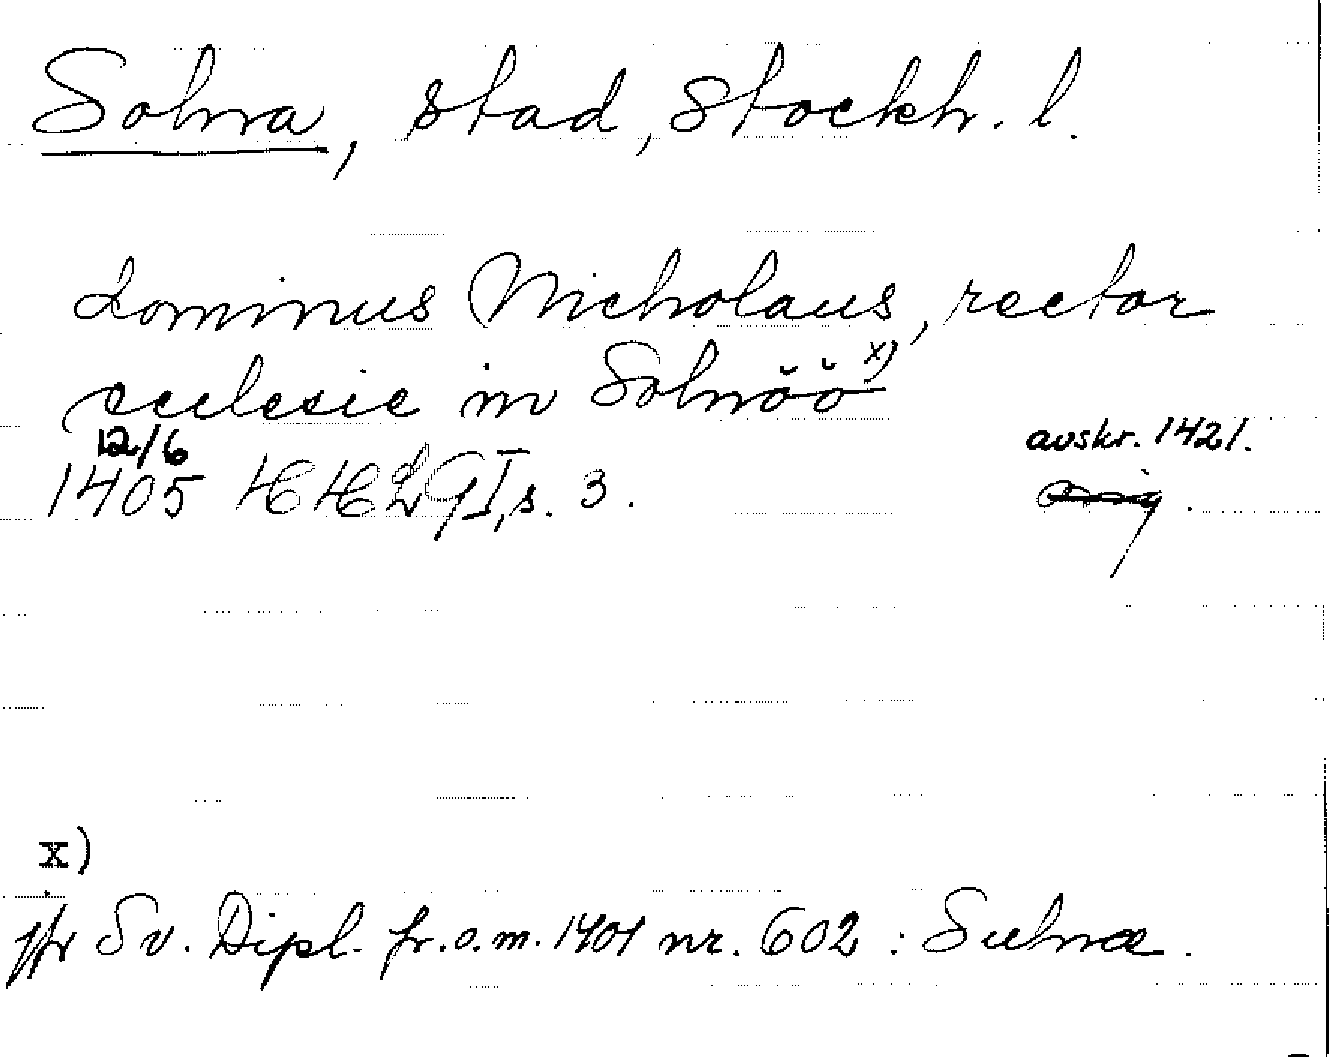 Solna, stad, Stockh. l.
dominus Nicholaus, rector
ecclesie in Solnöö x)
12/6
1405 HHLG I, s. 3.
avskr. 1421.
orig.
x)
jfr Sv. Dipl. fr.o.m. 1401 nr. 602 : Sulnæ.